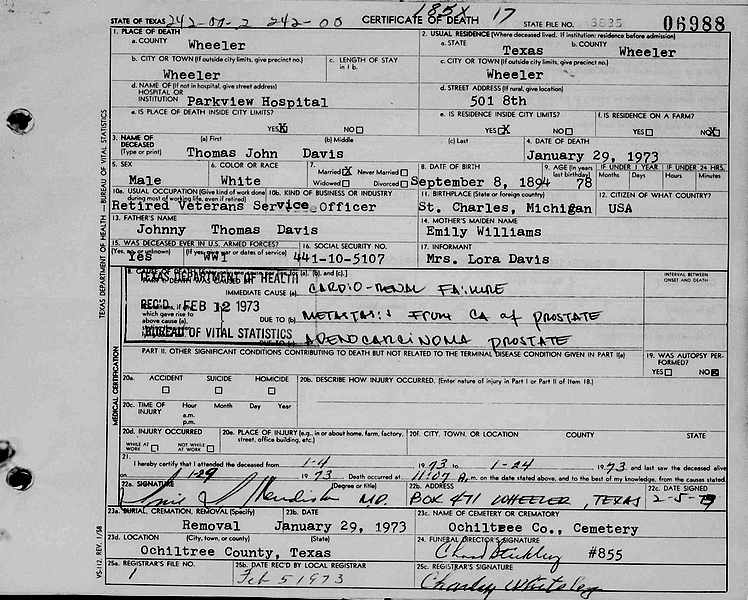 185X 17
STATE OF TEXAS 242-00-2 242-00 CERTIFICATE OF DEATH STATE FILE NO. 3835 06988
1. PLACE OF DEATH
a. COUNTY Wheeler
2. USUAL RESIDENCE (Where deceased lived. If institution: residence before admission)
a. STATE Texas b. COUNTY Wheeler
b. CITY OR TOWN (If outside city limits, give precinct no.) Wheeler
c. LENGTH OF STAY in 1 b.
c. CITY OR TOWN (If outside city limits, give precinct no.) Wheeler
d. NAME OF (If not in hospital, give street address) HOSPITAL OR INSTITUTION Parkview Hospital
d. STREET ADDRESS (If rural, give location) 501 8th
e. IS PLACE OF DEATH INSIDE CITY LIMITS? YES X NO
e. IS RESIDENCE INSIDE CITY LIMITS? YES X NO
f. IS RESIDENCE ON A FARM? YES NO X
3. NAME OF DECEASED (Type or print) (a) First (b) Middle (c) Last
Thomas John Davis
4. DATE OF DEATH January 29, 1973
5. SEX Male
6. COLOR OR RACE White
7. Married X Never Married Widowed Divorced
8. DATE OF BIRTH September 8, 1894
9. AGE (In years last birthday) 78
IF UNDER 1 YEAR Months Days
IF UNDER 24 HRS. Hours Minutes
10a. USUAL OCCUPATION (Give kind of work done during most of working life, even if retired)
10b. KIND OF BUSINESS OR INDUSTRY
Retired Veterans Service Officer
11. BIRTHPLACE (State or foreign country) St. Charles, Michigan
12. CITIZEN OF WHAT COUNTRY? USA
13. FATHER'S NAME Johnny Thomas Davis
14. MOTHER'S MAIDEN NAME Emily Williams
15. WAS DECEASED EVER IN U.S. ARMED FORCES? Yes (If yes, give war or dates of service) WWI
16. SOCIAL SECURITY NO. 441-10-5107
17. INFORMANT Mrs. Lora Davis
TEXAS DEPARTMENT OF HEALTH
REC'D FEB 12 1973
BUREAU OF VITAL STATISTICS
INTERVAL BETWEEN ONSET AND DEATH
IMMEDIATE CAUSE (a) CARDIO-RENAL FAILURE
which gave rise to above cause (a), DUE TO (b) METASTASIS FROM CA of PROSTATE
ADENOCARCINOMA PROSTATE
PART II. OTHER SIGNIFICANT CONDITIONS CONTRIBUTING TO DEATH BUT NOT RELATED TO THE TERMINAL DISEASE CONDITION GIVEN IN PART I(a)
19. WAS AUTOPSY PERFORMED? YES NO X
20a. ACCIDENT SUICIDE HOMICIDE
20b. DESCRIBE HOW INJURY OCCURRED. (Enter nature of injury in Part I or Part II of Item 18.)
20c. TIME OF INJURY Hour Month Day Year
a.m.
p.m.
20d. INJURY OCCURRED
WHILE AT WORK NOT WHILE AT WORK
20e. PLACE OF INJURY (e.g., in or about home, farm, factory, street, office building, etc.)
20f. CITY, TOWN, OR LOCATION COUNTY STATE
21. I hereby certify that I attended the deceased from 1-4 1973 to 1-24 1973 and last saw the deceased alive
on 1-29 1973 Death occurred at 11:07 A.m. on the date stated above, and to the best of my knowledge, from the causes stated.
22a. SIGNATURE (Degree or title) M.D.
22b. ADDRESS BOX 471 WHEELER, TEXAS
22c. DATE SIGNED 2-5-73
23a. BURIAL, CREMATION, REMOVAL (Specify) Removal
23b. DATE January 29, 1973
23c. NAME OF CEMETERY OR CREMATORY Ochiltree Co., Cemetery
23d. LOCATION (City, town, or county) (State)
Ochiltree County, Texas
24. FUNERAL DIRECTOR'S SIGNATURE #855
25a. REGISTRAR'S FILE NO. 1
25b. DATE REC'D BY LOCAL REGISTRAR Feb 5 1973
25c. REGISTRAR'S SIGNATURE
TEXAS DEPARTMENT OF HEALTH — BUREAU OF VITAL STATISTICS
MEDICAL CERTIFICATION
VS-112 REV. 1/58